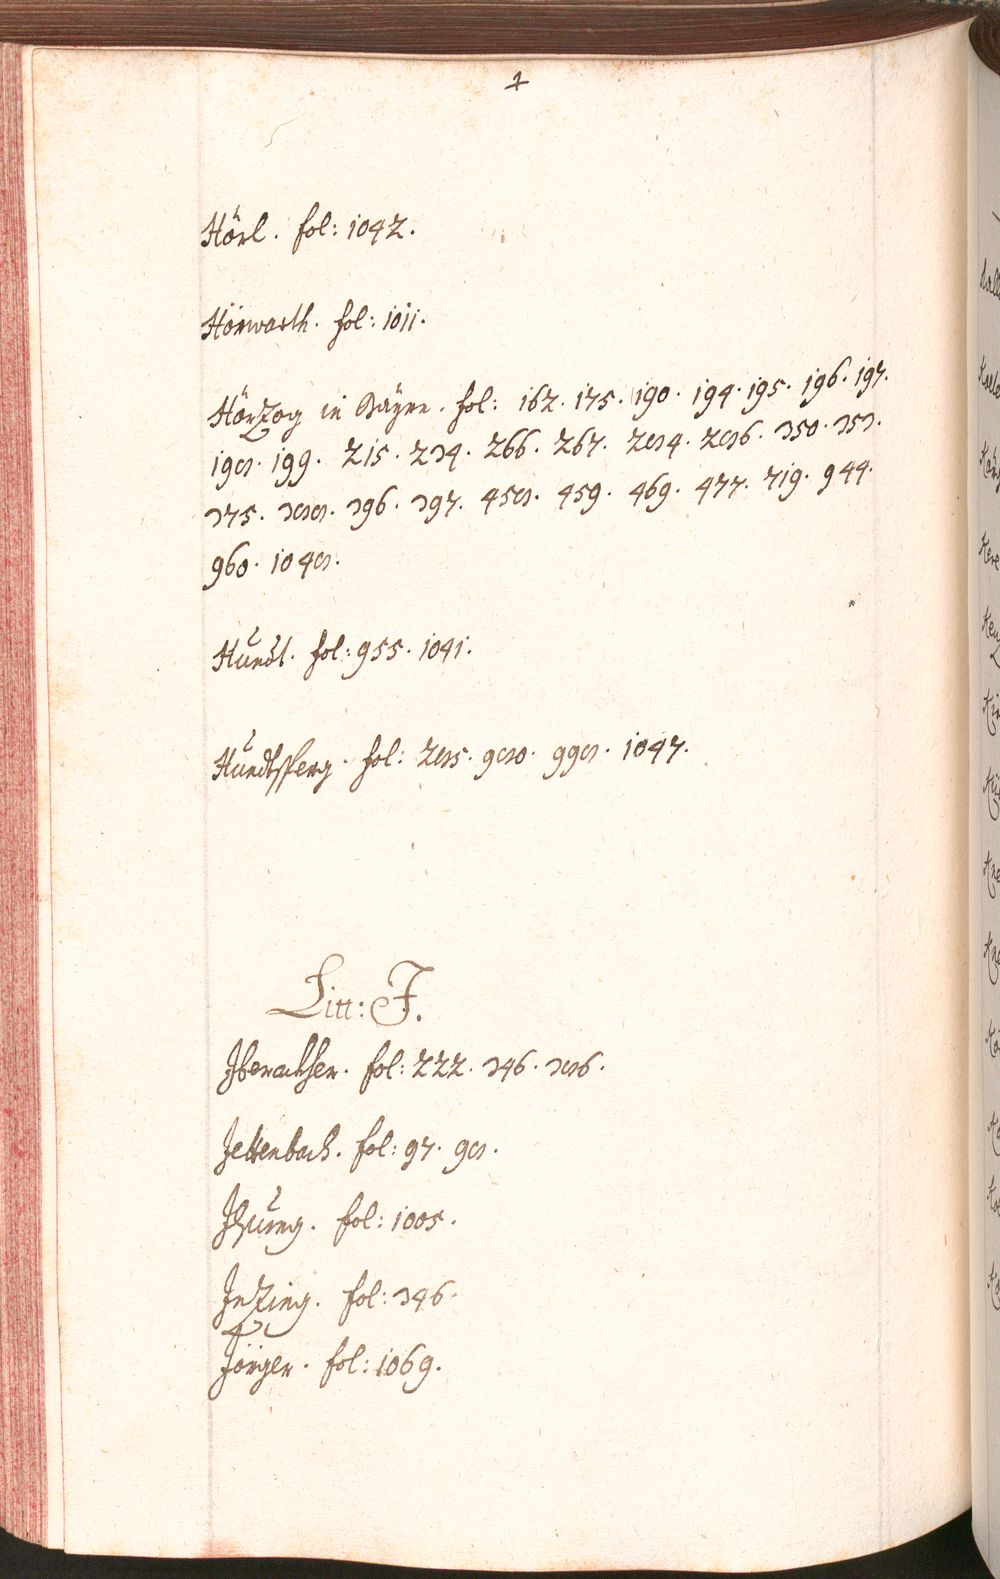 1
Hörl. fol: 1042.
Hörwarth. fol: 1011.
Hörzog in Bäyrn. fol: 162. 175. 190. 194. 195. 196. 197.
198. 199. 215. 234. 266. 267. 284. 286. 350. 353.
375. 388. 396. 397. 458. 459. 469. 477. 719. 944.
960. 1048.
Hundt. fol: 955. 1041.
Hundtsperg. fol: 285. 980. 998. 1047.
Litt: J.
Jberackher. fol: 222. 346. 386.
Jettenbach. fol: 97. 98.
Jlsung. fol: 1005.
Jnzing. fol: 346.
Jörger. fol: 1069.